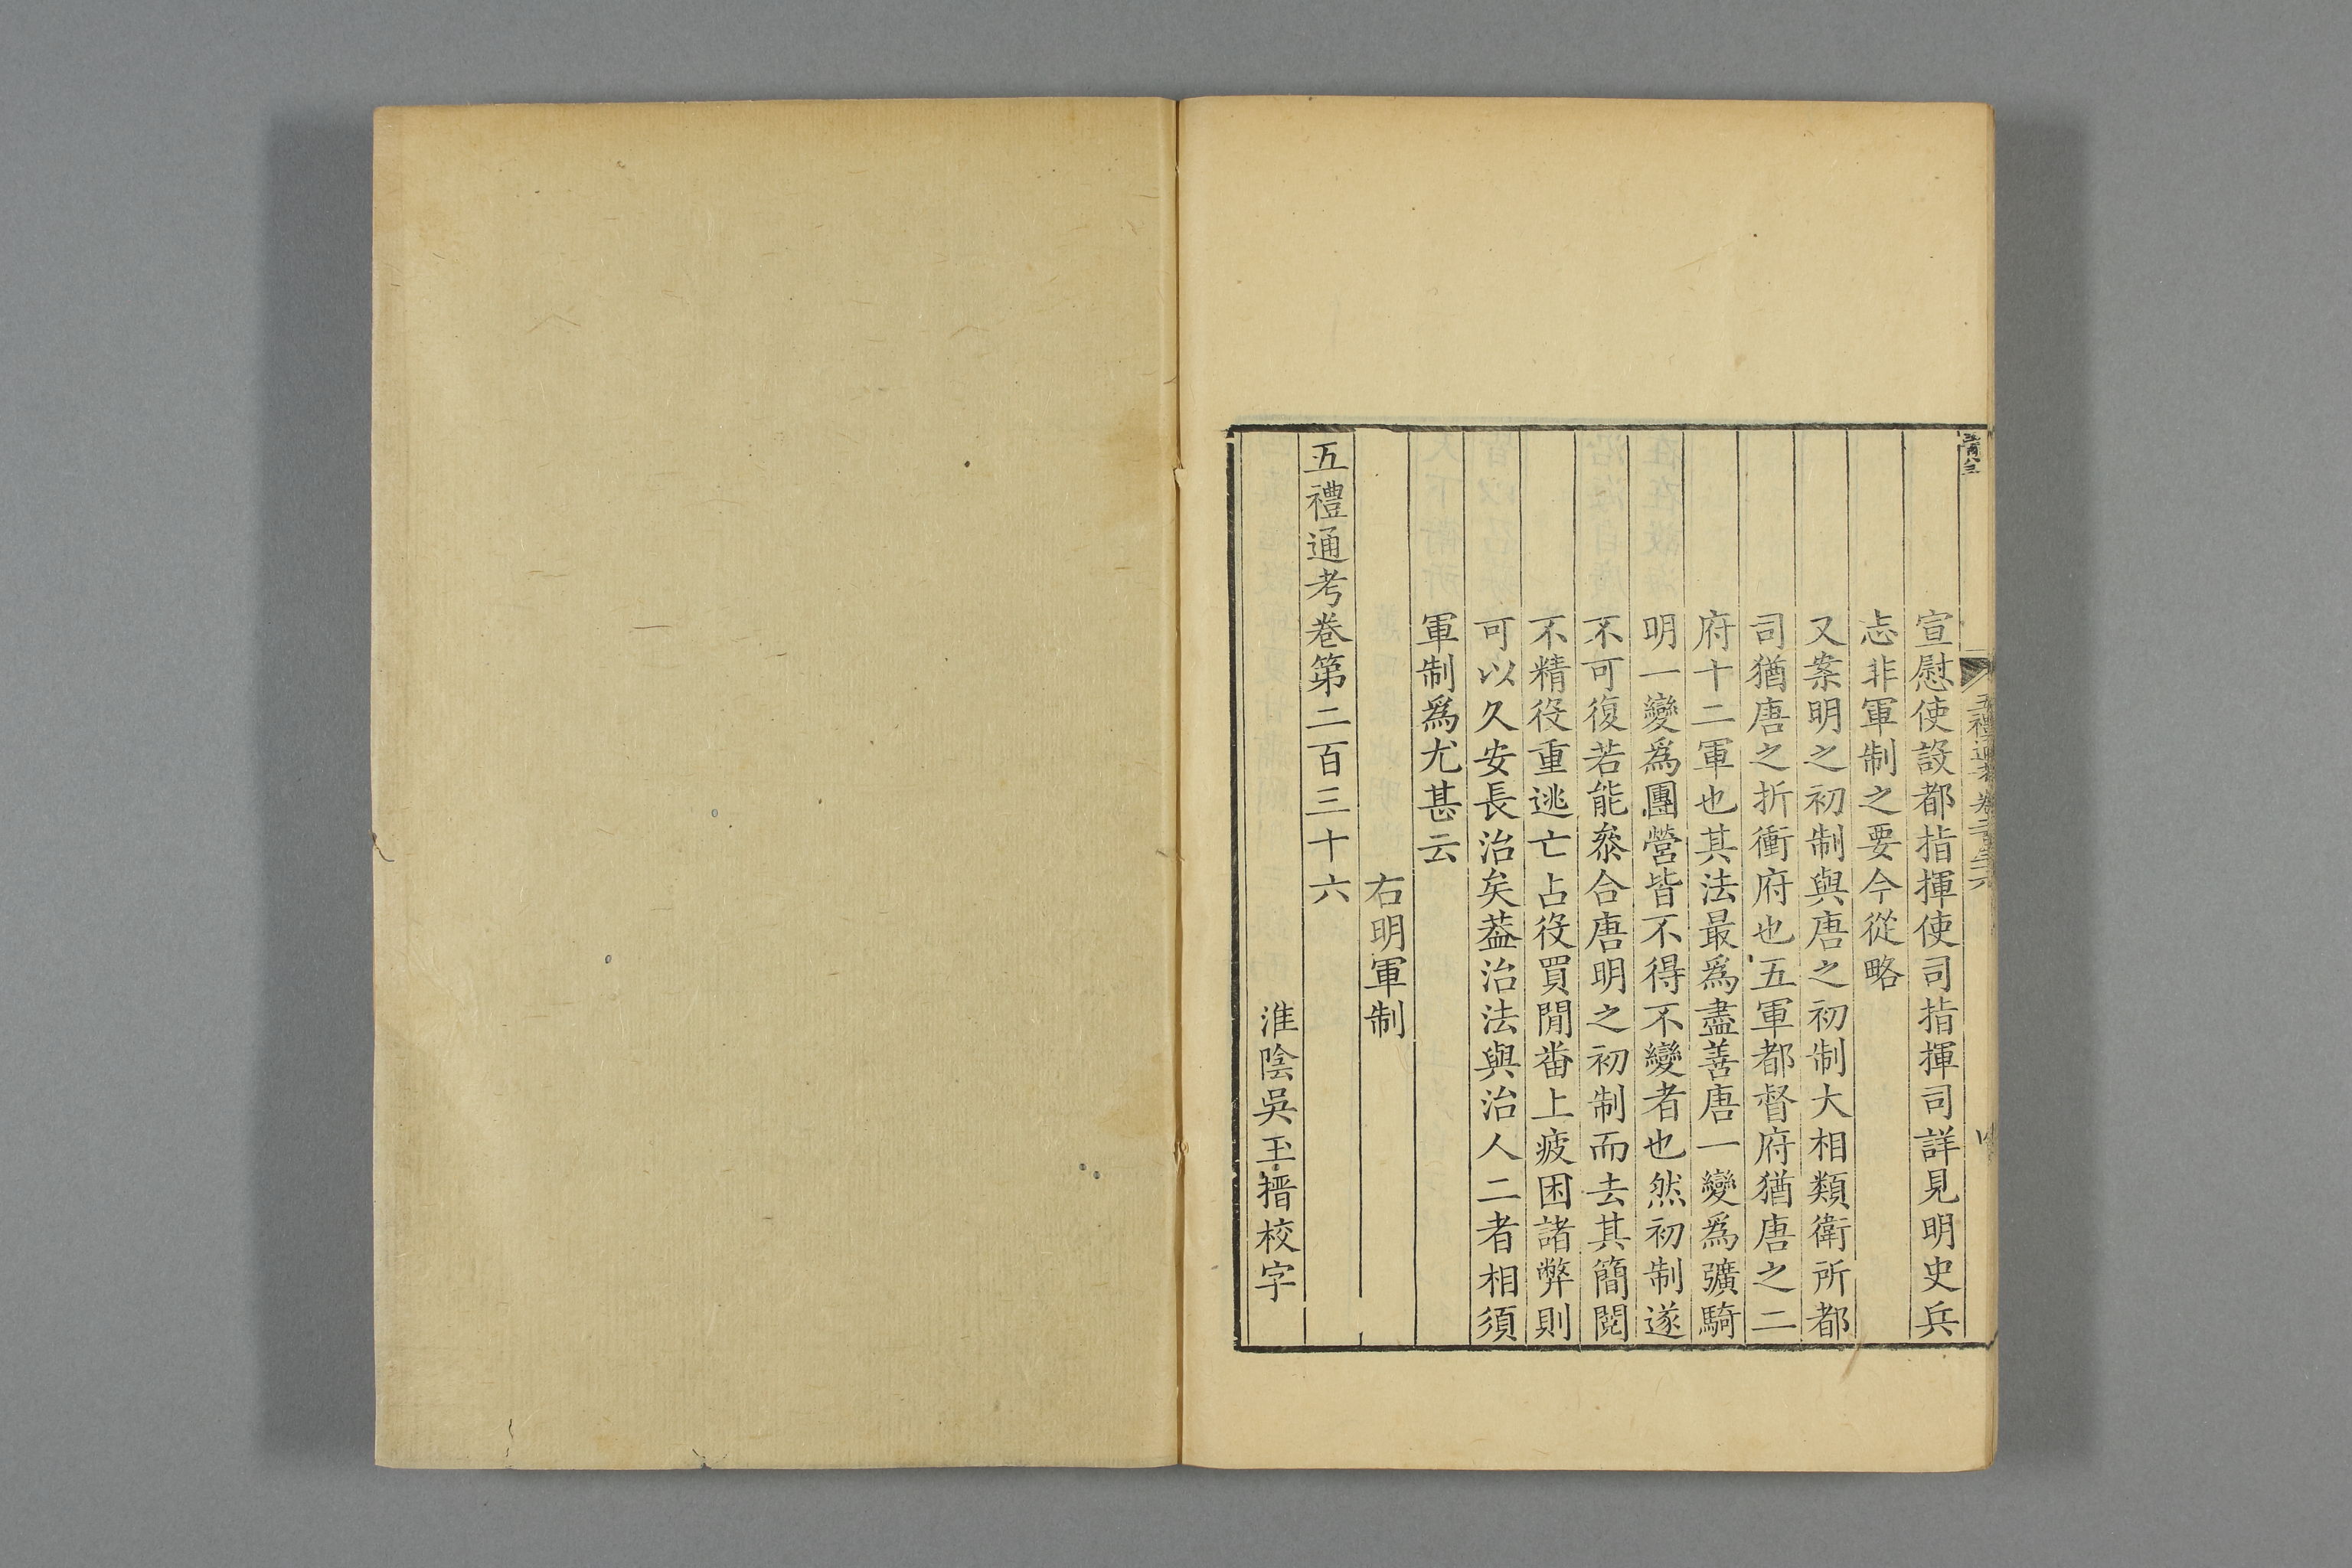 五禮通考卷二百三十六
宣慰使設都指揮使司指揮司詳見明史兵
志非軍制之要今從略
又案明之初制與唐之初制大相類衛所都
司猶唐之折衝府也五軍都督府猶唐之二
府十二軍也其法最爲盡善唐一變爲彍騎
明一變爲團營皆不得不變者也然初制遂
不可復若能叅合唐明之初制而去其簡閱
不精役重逃亡占役買閒畨上疲困諸弊則
可以久安長治矣葢治法與治人二者相須
軍制爲尤甚云
右明軍制
五禮通考卷第二百三十六
淮陰吳玉搢校字